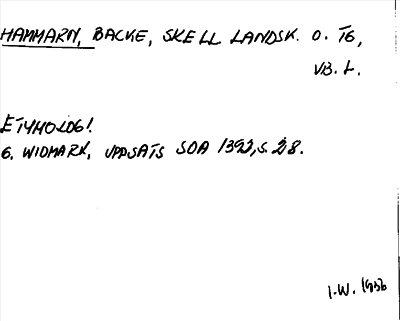 HAMMARN, BACKE, SKELL LANDSK. O. TG,
VB. L.
ETYMOLOGI
G. WIDMARK, UPPSATS SOA 1392, S. 28.
I.W. 1956